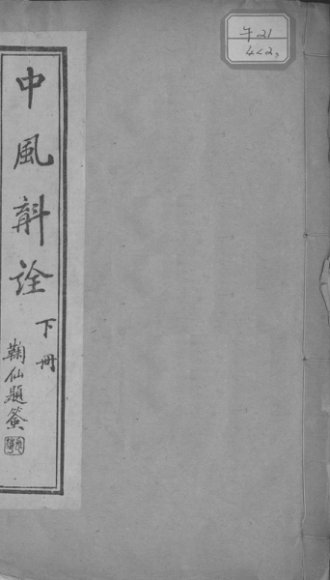 中風斠詮
下冊
鞠仙題簽
午21